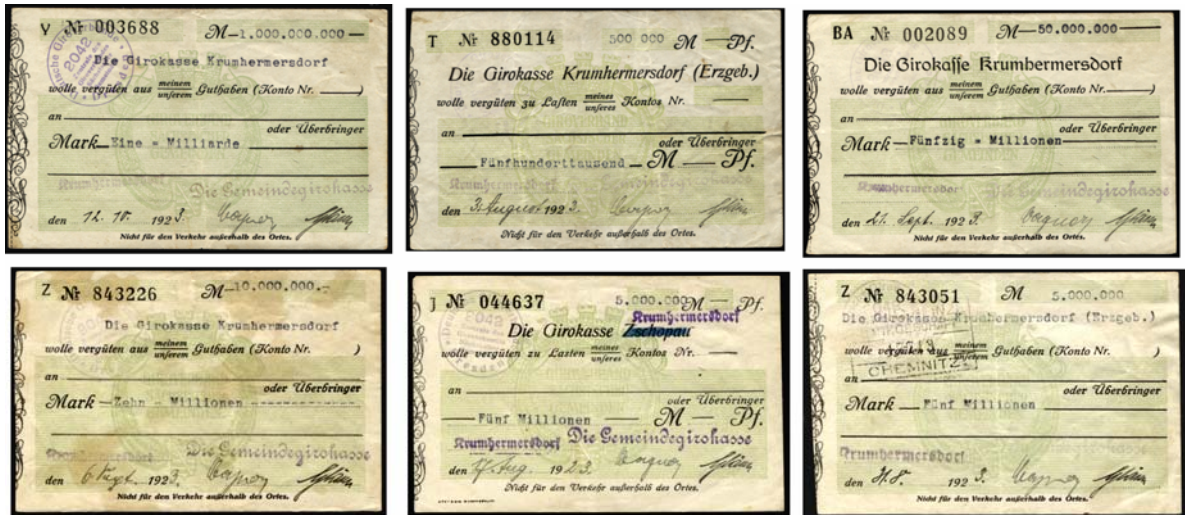 V № 003688 M—1.000.000.000—
Die Girokasse Krumhermersdorf
wolle vergüten aus meinem unserem Guthaben (Konto Nr. )
an
oder Überbringer
Mark—Eine = Milliarde
Krumhermersdorf Die Gemeindegirokasse
den 12. 10. 1923.
Nicht für den Verkehr außerhalb des Ortes.
T № 880114 500 000 M — Pf.
Die Girokasse Krumhermersdorf (Erzgeb.)
wolle vergüten zu Lasten meines unseres Kontos Nr. —
an
oder Überbringer
— Fünfhunderttausend — M — Pf.
Krumhermersdorf Die Gemeindegirokasse
den 3. August 1923.
Nicht für den Verkehr außerhalb des Ortes.
BA № 002089 M—50.000.000—
Die Girokasse Krumhermersdorf
wolle vergüten aus meinem unserem Guthaben (Konto Nr. )
an
oder Überbringer
Mark—Fünfzig = Millionen—
Krumhermersdorf Die Gemeindegirokasse
den 21. Sept. 1923.
Nicht für den Verkehr außerhalb des Ortes.
Z № 843226 M—10.000.000.-
Die Girokasse Krumhermersdorf
wolle vergüten aus meinem unserem Guthaben (Konto Nr. )
an
oder Überbringer
Mark—Zehn = Millionen ------------
Krumhermersdorf Die Gemeindegirokasse
den 6. Sept. 1923.
Nicht für den Verkehr außerhalb des Ortes.
J № 044637 5.000.000 M — Pf.
Krumhermersdorf
Die Girokasse Zschopau
wolle vergüten zu Lasten meines unseres Kontos Nr. —
an
oder Überbringer
— Fünf Millionen — M — Pf.
Krumhermersdorf Die Gemeindegirokasse
den Aug. 1923.
Nicht für den Verkehr außerhalb des Ortes.
Z № 843051 M 5.000.000
Die Girokasse Krumhermersdorf (Erzgeb.)
wolle vergüten aus meinem unserem Guthaben (Konto Nr. )
CHEMNITZ
an
oder Überbringer
Mark — Fünf Millionen
Krumhermersdorf
den 31. 8. 1923.
Nicht für den Verkehr außerhalb des Ortes.